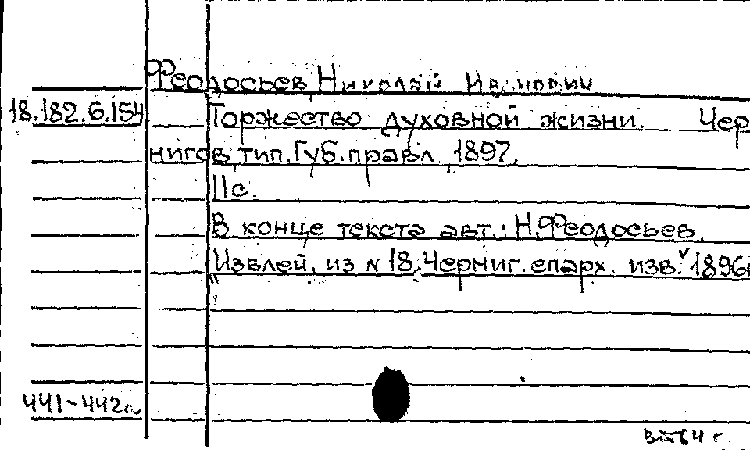 Феодосьев, Николай Иванович
18.182.6.154 Торжество духовной жизни. Чер
нигов, тип. Губ. правл, 1897.
11с.
В конце текста авт.: Н. Феодосьев.
Извлеч. из N 18, Черниг. епарх. изв. 1896
441-442